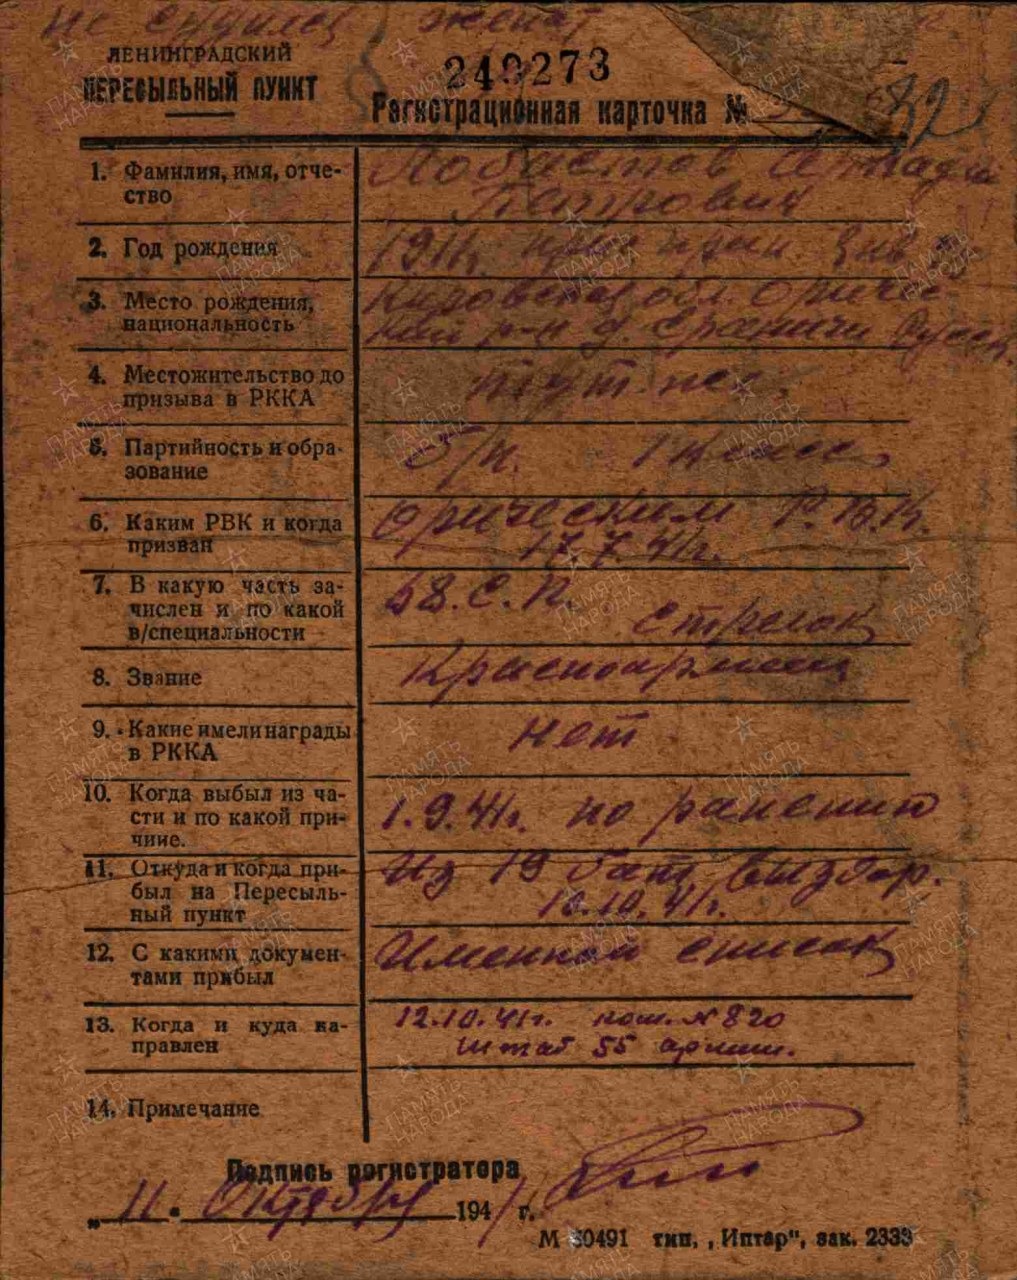 не судился женат
ЛЕНИНГРАДСКИЙ
ПЕРЕСЫЛЬНЫЙ ПУНКТ
249273
Регистрационная карточка №
82
1. Фамилия, имя, отче-
ство
Лобастов
Петрович
2. Год рождения
1911г.
3. Место рождения,
национальность
Кировская обл Оричев
кий р-н д.
4. Местожительство до
призыва в РККА
тут же
5. Партийность и обра-
зование
б/п. 1 класс
6. Каким РВК и когда
призван
Оричевским Р.В.К.
17.7.41г.
7. В какую часть за-
числен и по какой
в/специальности
58.С.П.
стрелок
8. Звание
Красноармеец
9. Какие имели награды
в РККА
нет
10. Когда выбыл из ча-
сти и по какой при-
чине.
1.9.41г. по ранению
11. Откуда и когда при-
был на Пересыль-
ный пункт
Из 19 бат. выздор.
10.10.41г.
12. С какими докумен-
тами прибыл
Именной список
13. Когда и куда на-
правлен
12.10.41г. ком. №820
штаб 55 армии.
14. Примечание
Подпись регистратора
„11" Октября 1941 г.
М 50491 тип. „Иптар", зак. 2333
ПАМЯТЬ НАРОДА